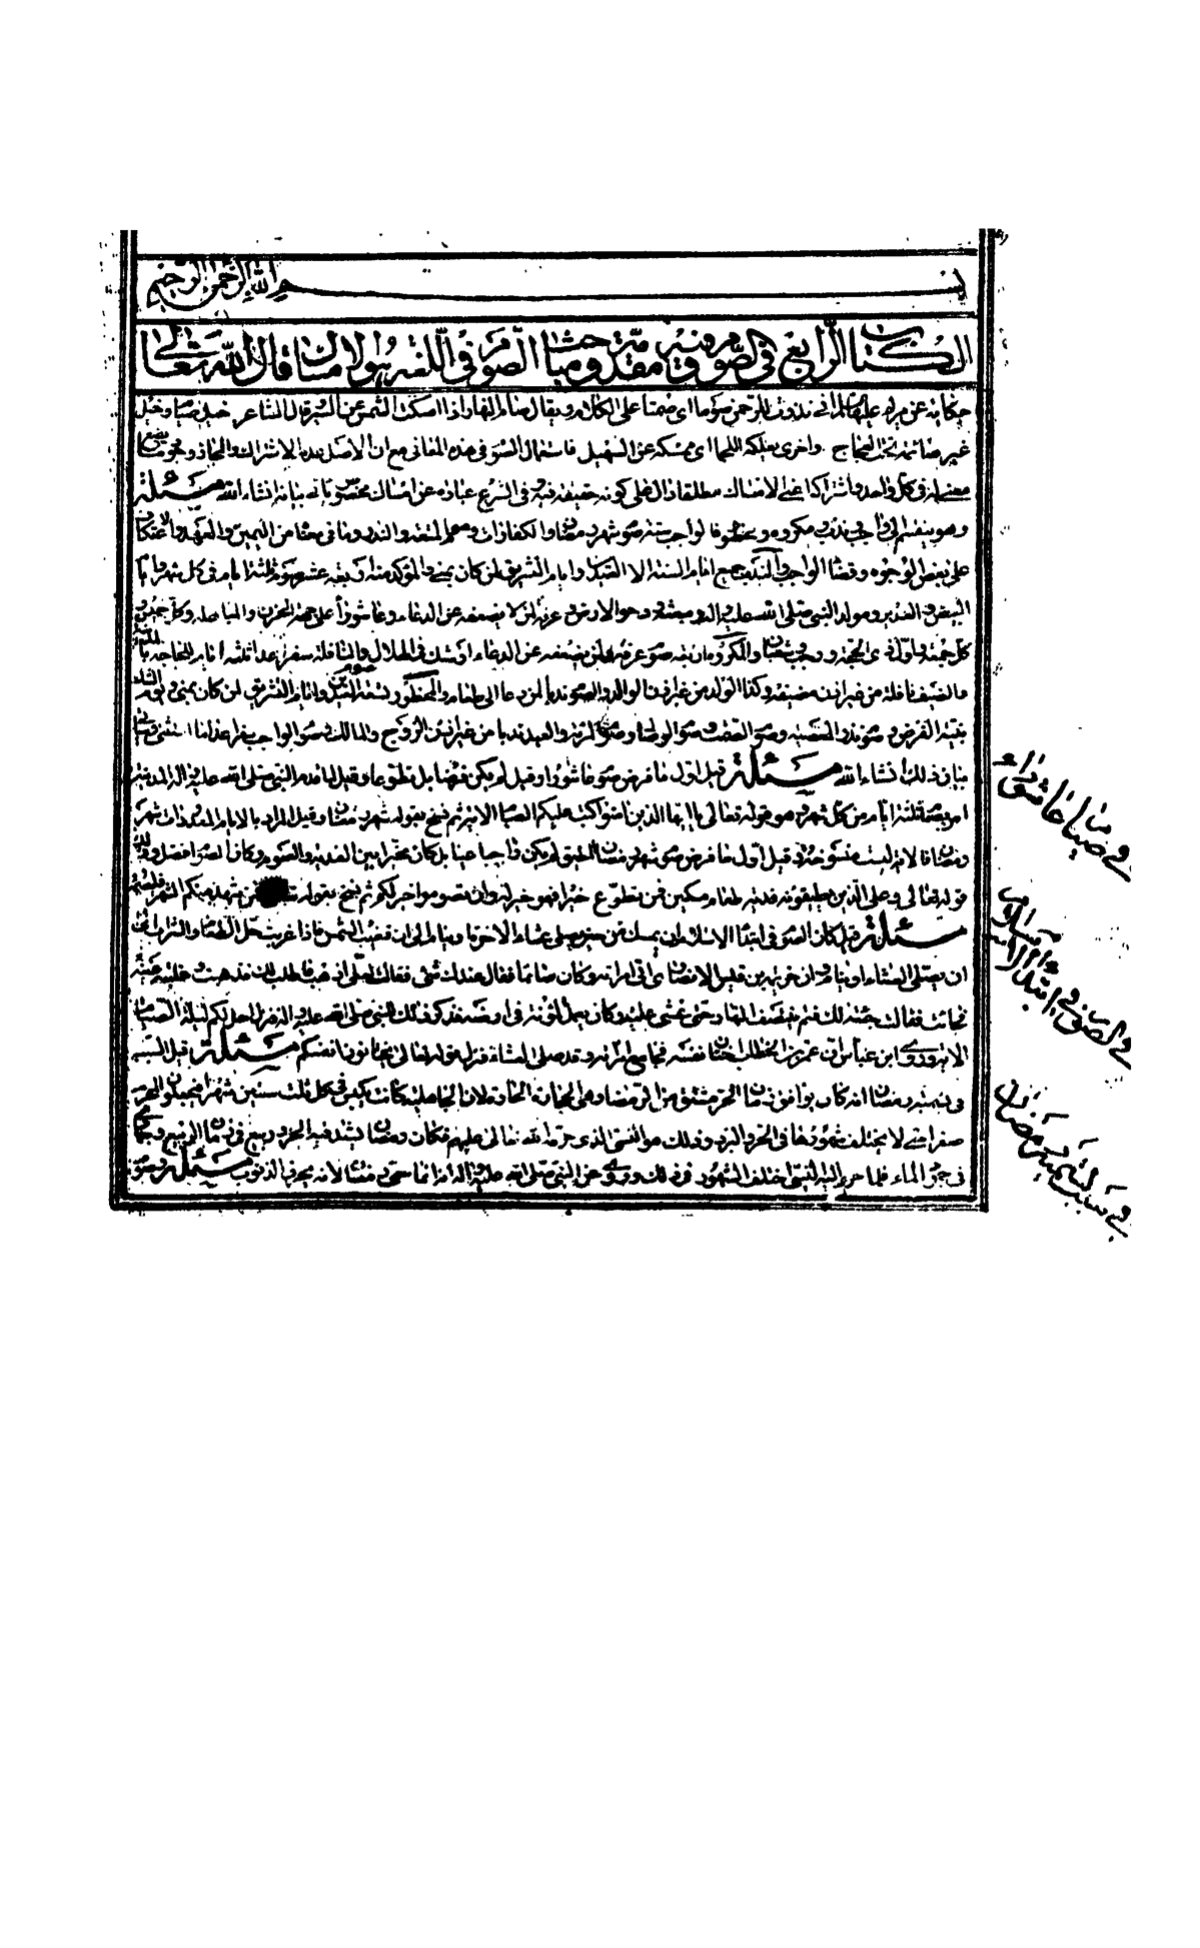 بسم الله الرحمن الرحيم
الكتاب الرابع في الصوم وفيه مقدمة ومباحث الصوم في اللغة هو الامساك قال الله تعالى
حكاية عن مريم عليها السلام اني نذرت للرحمن صوما اي صمتا على الكلام ويقال صام النهار اذا امسكت الشمس عن السير قال الشاعر خيل صيام وخيل
غير صائمة تحت العجاج واخرى تعلك اللجما اي ممسكة عن الصهيل فاستعمال الصوم في هذه المعاني مع ان الاصل عدم الاشتراك والمجاز
في كل واحد مطلقا في الشرع عبارة عن امساك مخصوص ياتي بيانه انشاء الله مسئلة
وهو ينقسم الى واجب وندب ومكروه ومحظور فالواجب ستة صوم شهر رمضان والكفارات ودم المتعة والنذر وما في معناه من اليمين والعهد والاعتكاف
على بعض الوجوه وقضاء الواجب والندب جميع ايام السنة الا العيدين وايام التشريق لمن كان بمنى والمؤكد منه اربعة عشر صوم ثلثة ايام في كل شهر وايام
البيض والغدير ومولد النبي صلى الله عليه واله ومبعثه ودحو الارض وعرفة لمن لا يضعفه عن الدعاء وعاشوراء على جهة الحزن والمباهلة وكل خميس و
كل جمعة واول ذي الحجة ورجب وشعبان والمكروه اربعة صوم عرفة لمن يضعفه عن الدعاء او شك في الهلال والنافلة سفرا عدا ثلثة ايام للحاجة بالمدينة
والضيف نافلة من غير اذن مضيفه وكذا الولد من غير اذن الوالد والصوم ندبا لمن دعا الى طعام والمحظور تسعة صوم العيدين وايام التشريق لمن كان بمنى ويوم الشك
بنية الفرض وصوم نذر المعصية وصوم الصمت وصوم الوصال وصوم المرئة والعبد ندبا من غير اذن الزوج والمالك وصوم الواجب سفرا عدا ما استثنى وسياتي
بيان ذلك انشاء الله مسئلة قيل اول ما فرض صوم عاشورا وقيل لم يكن فرضا بل تطوعا وقيل لما قدم النبي صلى الله عليه واله المدينة
امر بصيام ثلثة ايام من كل شهر وهو قوله تعالى يا ايها الذين امنوا كتب عليكم الصيام الاية ثم نسخ بقوله شهر رمضان وقيل المراد بالايام المعدودات شهر
رمضان فالاية ليست منسوخة وقيل اول ما فرض صوم شهر رمضان لم يكن واجبا عينا بل كان مخيرا بين الفدية والصوم وكان الصوم افضل
قوله تعالى وعلى الذين يطيقونه فدية طعام مسكين فمن تطوع خيرا فهو خير له وان تصوموا خير لكم ثم نسخ بقوله فمن شهد منكم الشهر فليصمه
مسئلة قيل كان الصوم في ابتداء الاسلام ان يمسك من حين يصلي عشاء الاخرة او ينام الى ان تغيب الشمس فاذا غربت حل الطعام والشراب الى
ان يصلي العشاء او ينام وان قيس الانصاري اتى امراته وكان صائما فقال عندك شيء فقالت لعلي اذهب فاطلب لك فذهبت وغلبته عينه
فجائت فقالت خيبة لك فلم ينتصف النهار حتى غشي عليه وكان يعمل يومه في ارضه فذكر ذلك للنبي صلى الله عليه واله فنزل احل لكم ليلة الصيام
الاية وروى ابن عباس ان عمر بن الخطاب اختان نفسه فجامع امراته وقد صلى العشاء فنزل قوله تعالى تختانون انفسكم مسئلة قيل السبب
في تسميته رمضان انه كان يوافق زمان الحر مشتق من الرمضاء وهي الحجارة الحارة لان الجاهلية كانت تكبس في كل ثلث سنين شهرا فيجعلون المحرم
صفرا حتى لا يختلف شهورها في الحر والبرد وذلك هو النسيء الذي حرمه الله تعالى عليهم فكان رمضان يشتد فيه الحر وربيع في زمان الربيع وجمادى
في جمود الماء فلما حرم الله النسيء اختلف الشهور في ذلك وروي عن النبي صلى الله عليه واله انه انما سمي رمضان لانه يحرق الذنوب مسئلة وصوم
في صيام عاشوراء
في الصوم في ابتداء الاسلام
في سبب تسمية رمضان